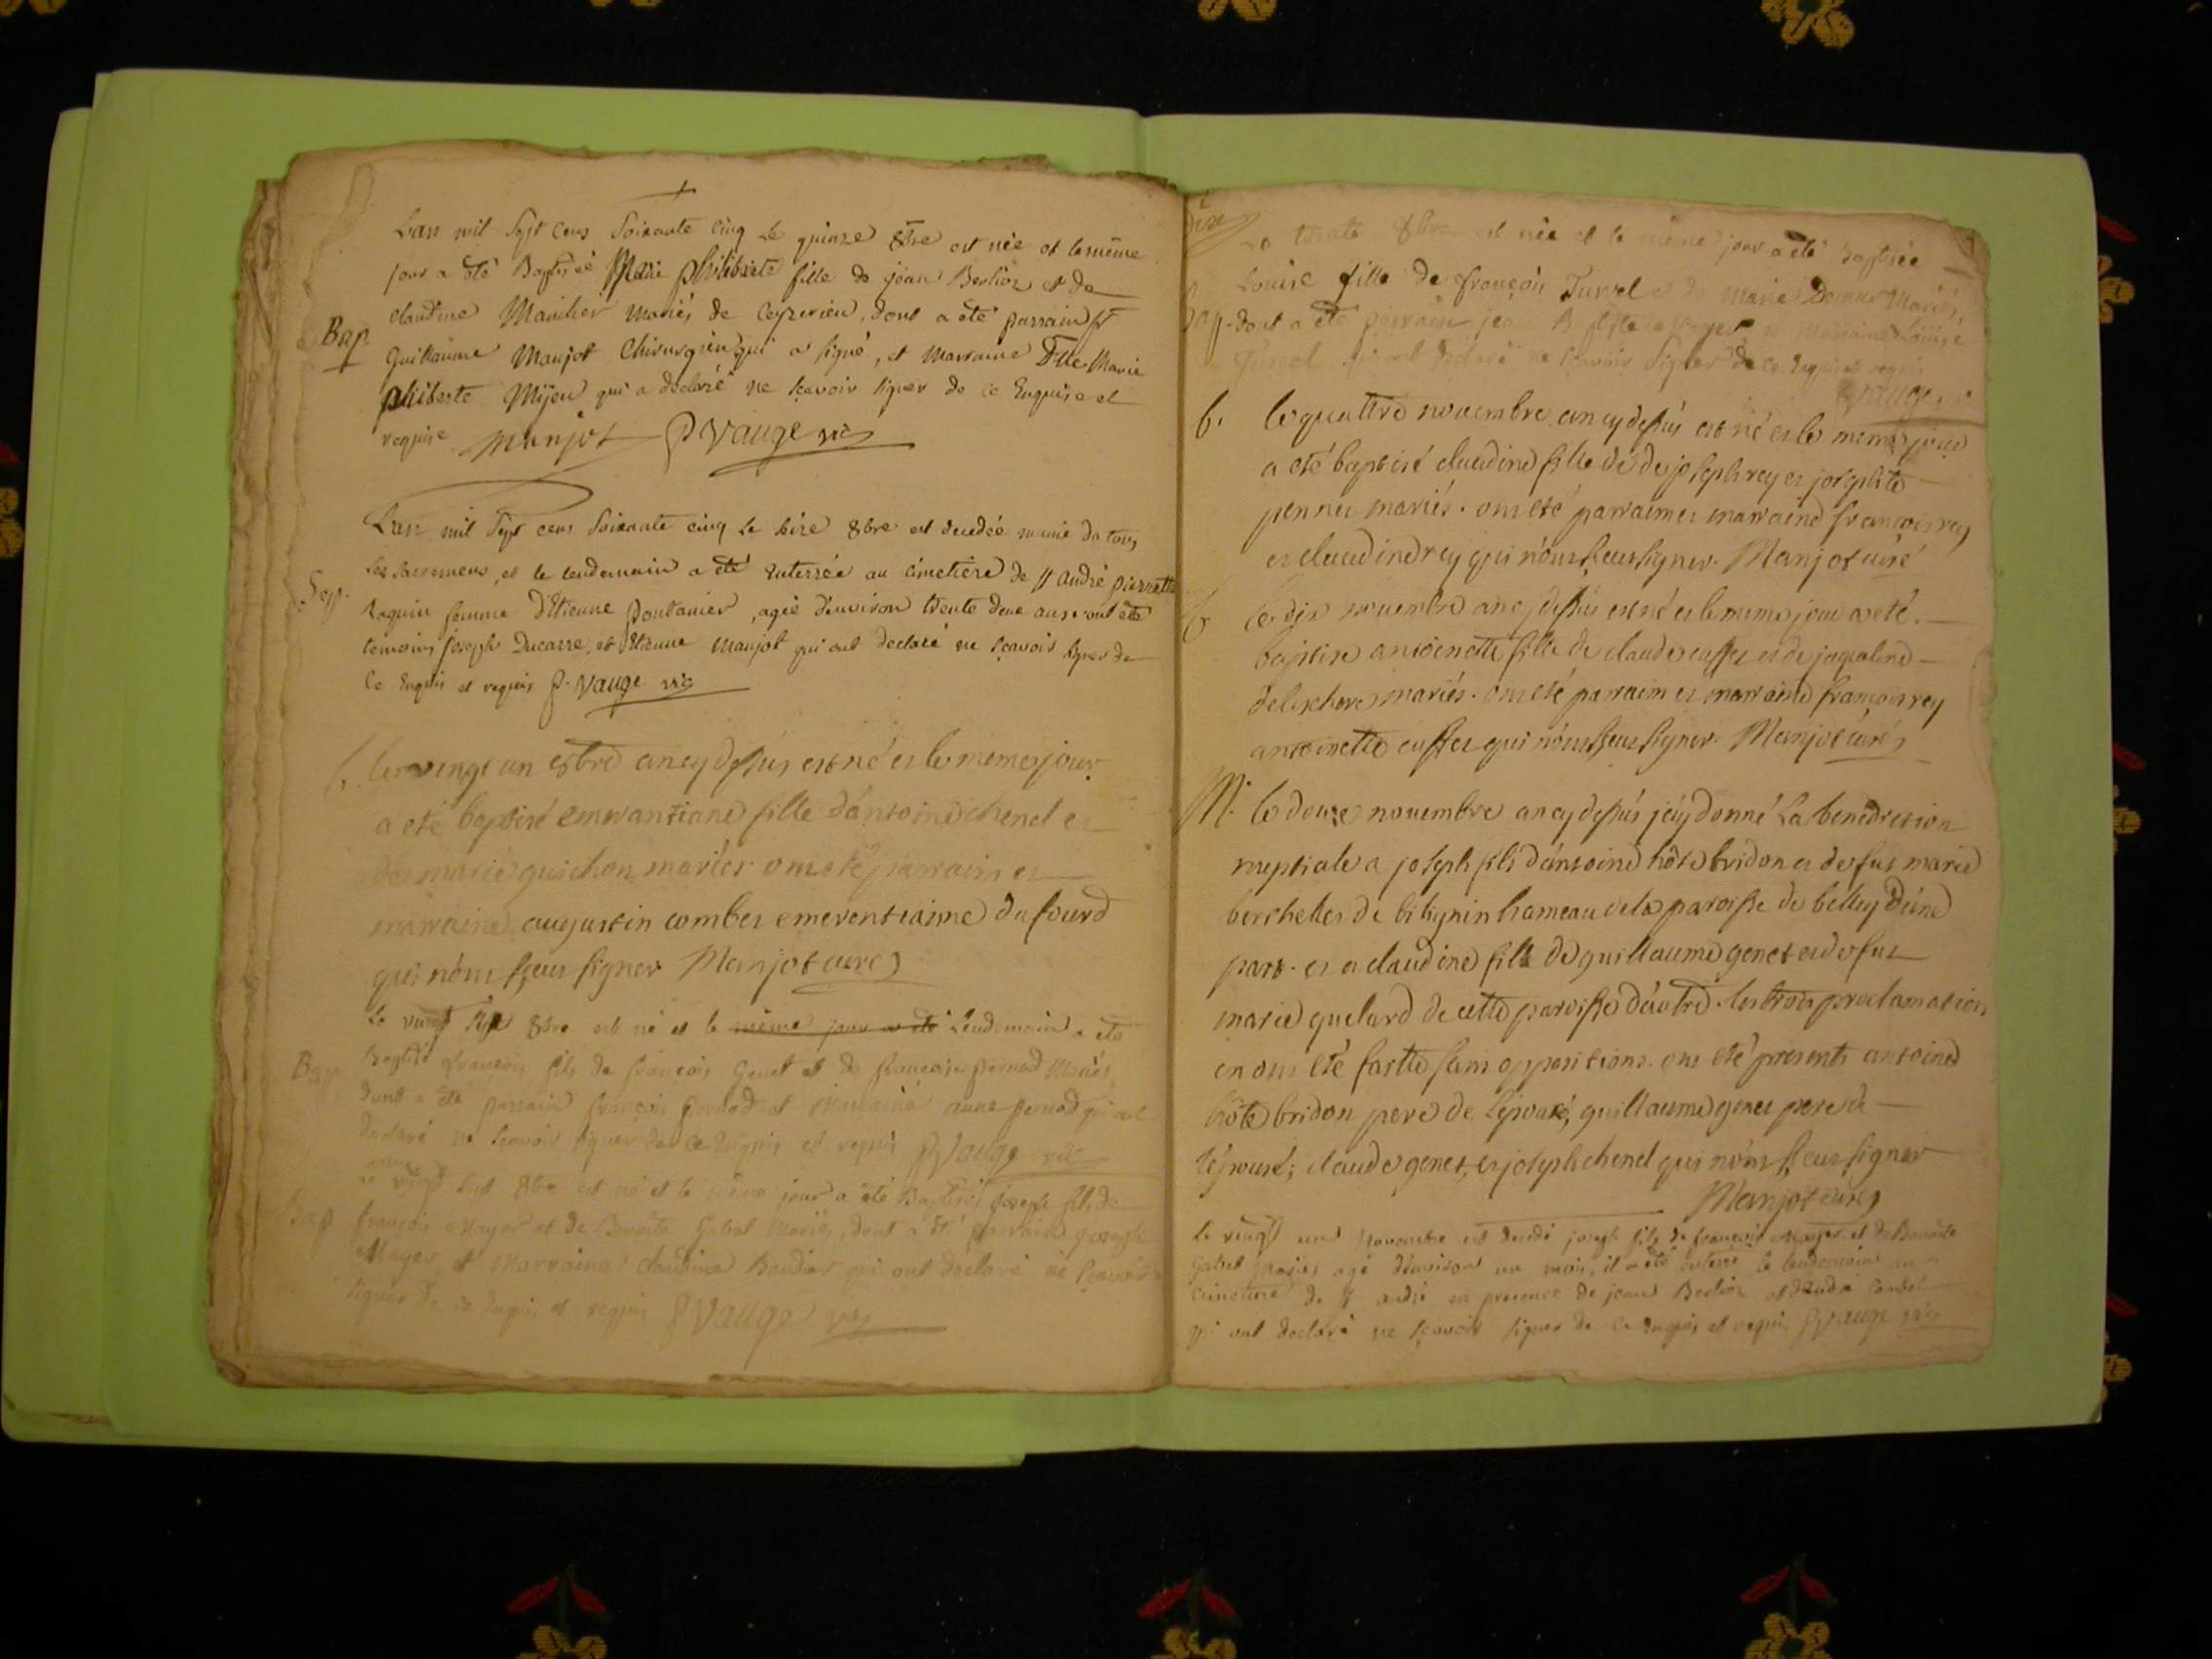 L'an mil Sept Cens Soixante Cinq Le quinze 8bre est née et le même
jour a été Baptisée Marie philiberte fille de jean Bestion et de
Bap. claudine Mancher mariés de Ceyzerieu, dont a été parrain Sr
Guillaume Manjot Chirurgien qui a signé, et Marraine Dlle Marie
philiberte Mijeu qui a declaré ne sçavoir signer de ce Enquise et
requise Manjot P Vauge vic
L'an mil Sept cens Soixante cinq Le seize 8bre est decedée munie de tous
Les Sacremens, et le lendemain a été Enterrée au cimetiere de st André pierrette
Sep. Raquin femme d'Etienne Pontanier, agée d'environ trente deux ans, ont été
temoins joseph Ducarre, et Etienne Manjot qui ont declaré ne sçavoir signer de
Ce Enquis et requis P. Vauge vic
b. le vingt un 8bre an cy dessus est né et le meme jour
a eté baptisé emerantiane fille d'antoine chenel et
de marie guichon mariés ont eté parrain et
marraine augustin combet emerentianne dufourd
qui n'ont sceu signer Manjot curé
Le vingt Sept 8bre est né et le même jour a été Lendemain a été
Bap. Baptisé François fils de françois Genet et de françoise pernod Mariés,
dont a été parrain françois pernod et Marraine anne pernod qui ont
declaré ne sçavoir signer de ce Enquis et requis P Vauge vic
Le vingt Sept 8bre est né et le même jour a été Baptisé joseph fils de
Bap françois Mayer et de Benoîte Gabet Mariés, dont a été parrain joseph
Mayer et Marraine claudine Baudier qui ont déclaré ne sçavoir
signer de ce Enquis et requis P Vauge vic
Dix
Le trente 8bre est née et le même jour a été Baptisée
Louise fille de françois Turrel et de Marie Mariés,
Bap. dont a été parrain jean B et Marraine Louise
Turrel qui ont declaré ne sçavoir Signer de ce Enquis et requis
P Vauge vic
b. le quattre nouembre an cy dessus est né et le meme jour
a eté baptisé claudine fille de de joseph rey et josephte
pennet mariés. ont eté parraim et marraine francois rey
et claudine rey qui n'ont sceu signer. Manjot curé
b le dix nouembre an cy dessus est né et le meme jour a eté.
baptise antoinette fille de claude cusset et de jaqueline
delechere mariés. ont eté parraim et marraine françois rey
antoinette cusset qui n'ont sceu signer. Manjot curé
M. le douze nouembre an cy dessus j'ey donné La benediction
nuptiale a joseph fils d'antoine hôte bridon et de fut marie
berchettet de bitignin hameau de la paroisse de belley d'une
part. et a claudine fille de guillaume genet et de fut
marie guelard de cette paroisse d'autre. les trois proclamations
en ont eté faitte sans oppositions. ont eté presents antoine
hôte bridon pere de l'epouxé, guillaume genet pere de
l'épouse; claude genet, et joseph chenel qui n'ont sceu signer
Manjot curé
Le vingt un Novembre est decedé joseph fils de françois Mayer et de Benoîte
Gabet mariés agé d'environ un mois, il a été enterré le lendemain au
cimetiere de st andré en presence de jean Bestion et d'andré Combet
qui ont declaré ne sçavoir signer de ce enquis et requis P Vauge vic